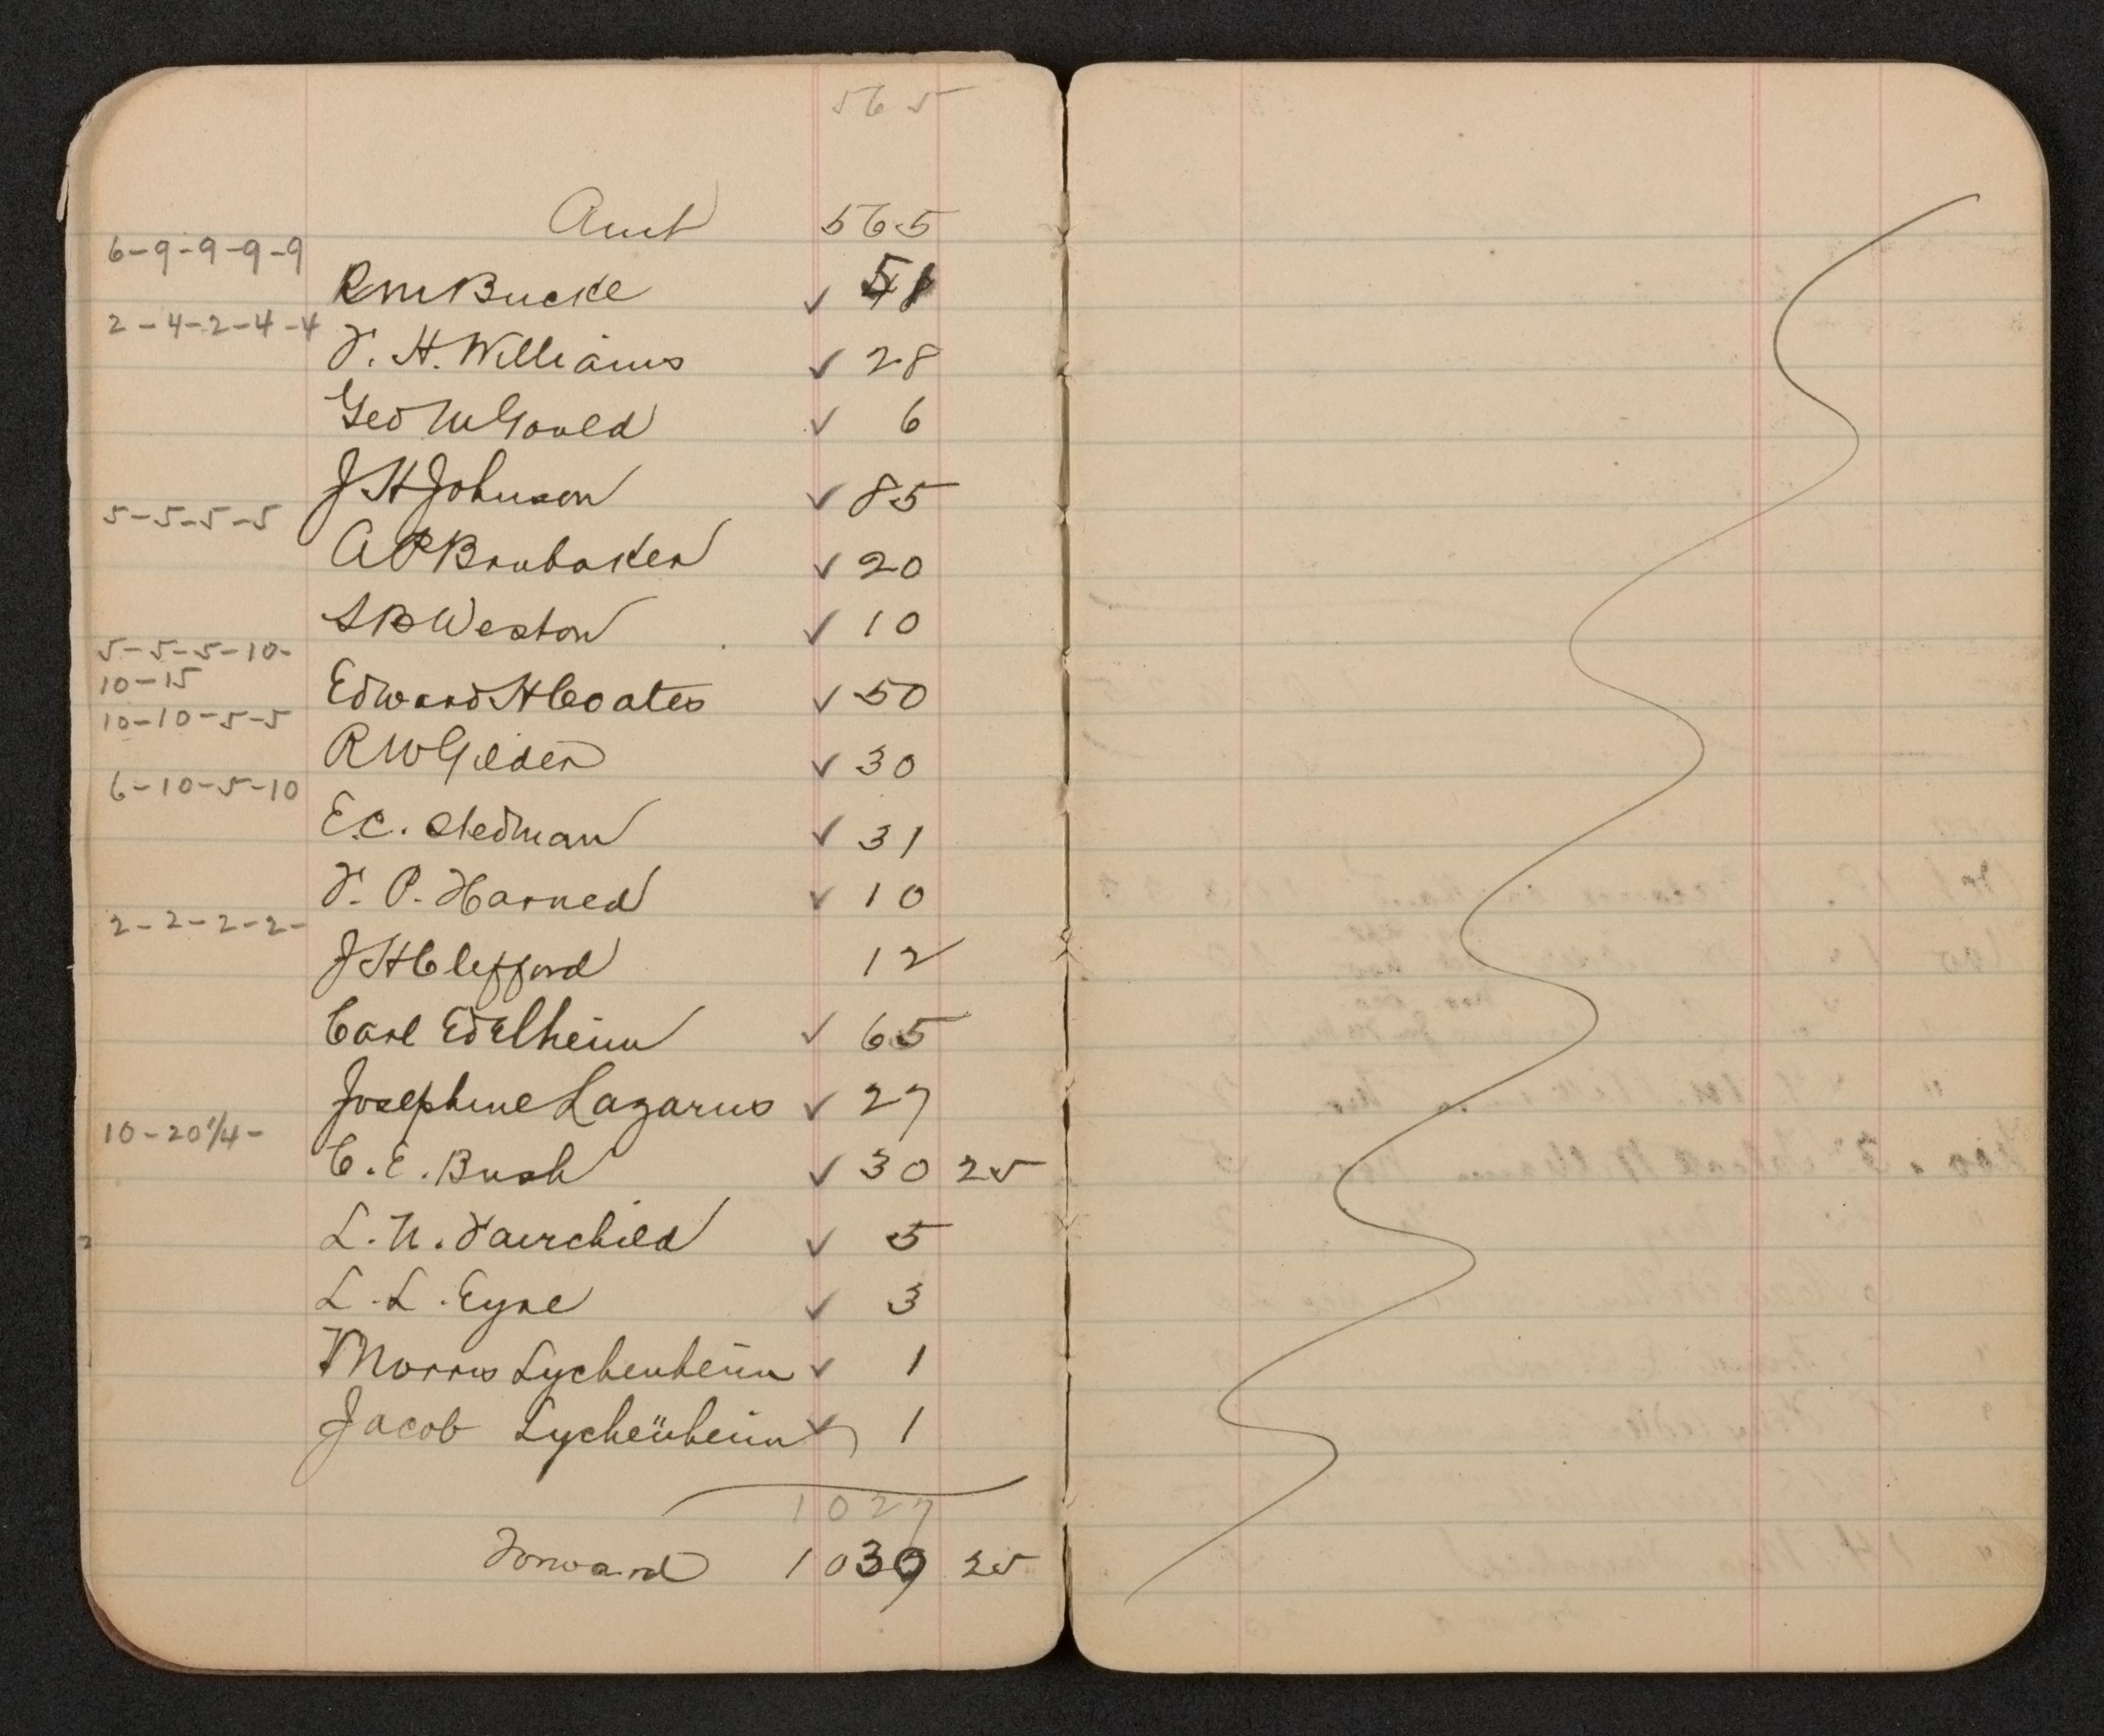 565
Amt 565
6-9-9-9-9
RM Bucke ✓ 51
2-4-2-4-4
T. H. Williams ✓ 28
Geo M Gould ✓ 6
J H Johnson ✓ 85
5-5-5-5
A P Brubaker ✓ 20
S B Weston ✓ 10
5-5-5-10-
10-15
Edward H Coates ✓ 50
10-10-5-5
R W Gilder ✓ 30
6-10-5-10
E.C. Stedman ✓ 31
T. P. Harned ✓ 10
2-2-2-2-
J H Clifford 12
Carl Edelheim ✓ 65
Josephine Lazarus ✓ 27
10-20 1/4-
C. E. Bush ✓ 30 25
L. N. Fairchild ✓ 5
L. L. Eyre ✓ 3
Morris Lychenheim ✓ 1
Jacob Lychenheim ✓ 1
1027
Forward 1039 25